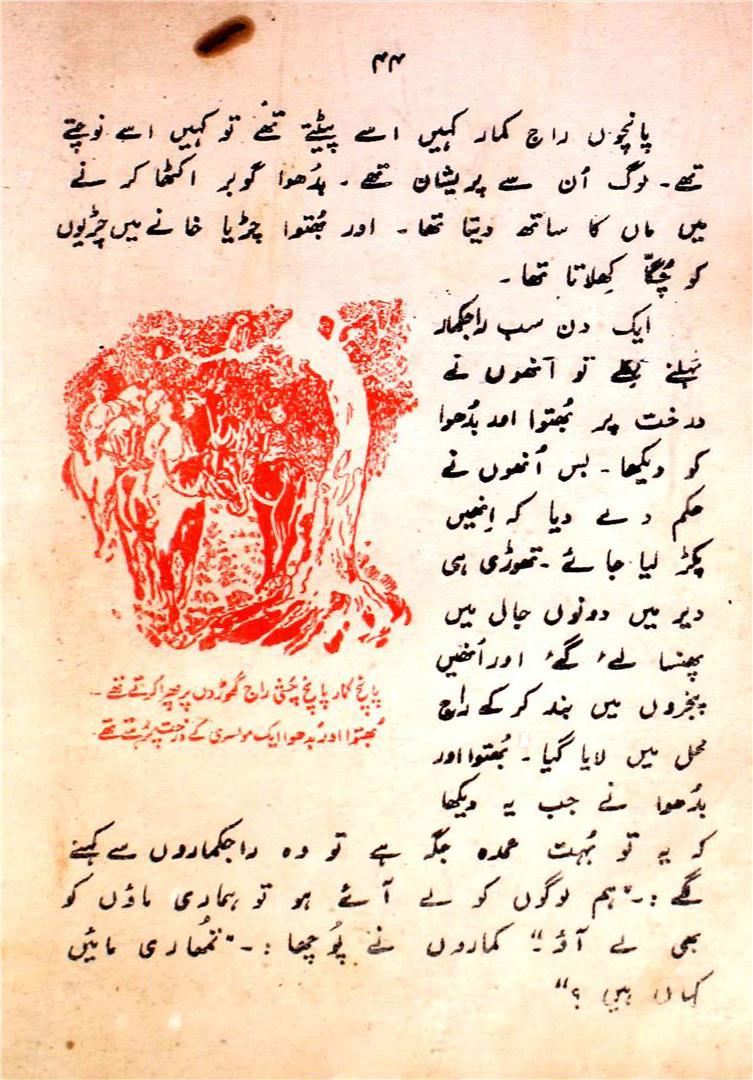 ۴۴
پانچوں راج کمار کہیں اسے پیٹتے تھے تو کہیں اسے نوچتے
تھے۔ لوگ اُن سے پریشان تھے۔ بدُھوا گوبر اکٹھا کرنے
میں ماں کا ساتھ دیتا تھا۔ اور بُھتوا چڑیا خانے میں چڑیوں
کو چُگّا کِھلاتا تھا۔
ایک دن سب راجکمار
ٹہلنے نکلے تو اُنھوں نے
درخت پر بُھتوا اور بدُھوا
کو دیکھا۔ بس اُنھوں نے
حکم دے دیا کہ اِنھیں
پکڑ لیا جائے۔ تھوڑی ہی
دیر میں دونوں جال میں
پھنسا لیٔے گیٔے اور اُنھیں
پنجروں میں بند کر کے راج
محل میں لایا گیا۔ بُھتوا اور
بدُھوا نے جب یہ دیکھا
کہ یہ تو بُہت عمدہ جگہ ہے تو وہ راجکماروں سے کہنے
لگے :۔"ہم لوگوں کو لے آئے ہو تو ہماری ماؤں کو
بھی لے آؤ۔" کماروں نے پُوچھا :۔"تمُھاری مائیں
کہاں ہیں ؟"
پانچ کمار پانچ راج گھوڑوں پر پھرا کرتے تھے۔
بُھتوا اور بُدھوا ایک مولسری کے درخت پر تھے۔